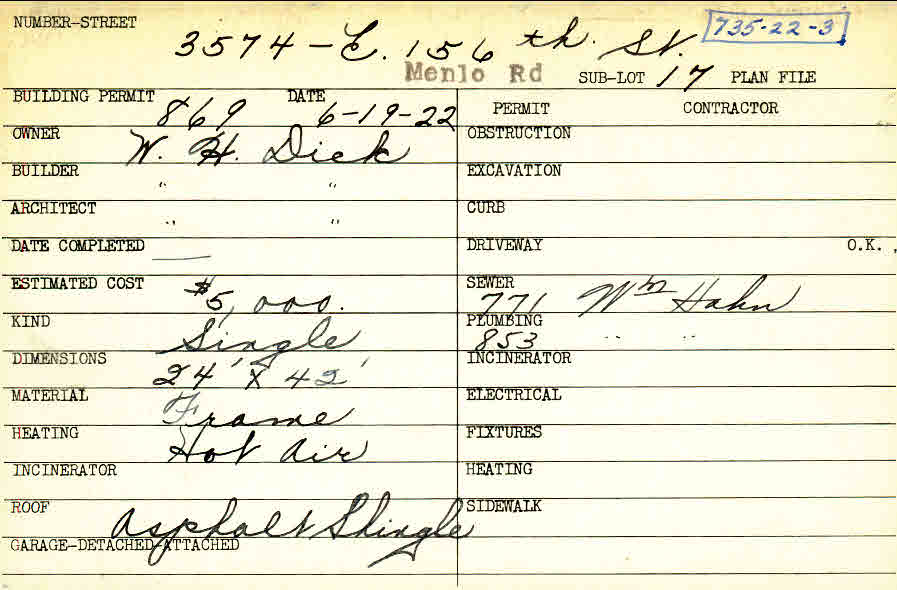 NUMBER-STREET 3574 - E. 156 th. St. 735-22-3
Menlo Rd SUB-LOT 17 PLAN FILE
BUILDING PERMIT 869 DATE 6-19-22 PERMIT CONTRACTOR
OWNER W. H. Dick OBSTRUCTION
BUILDER " " EXCAVATION
ARCHITECT " " CURB
DATE COMPLETED — DRIVEWAY O.K.
ESTIMATED COST $5,000. SEWER 771 Wm Hahn
KIND Single PLUMBING 853 " "
DIMENSIONS 24' X 42' INCINERATOR
MATERIAL Frame ELECTRICAL
HEATING Hot Air FIXTURES
INCINERATOR HEATING
ROOF Asphalt Shingle SIDEWALK
GARAGE-DETACHED-ATTACHED